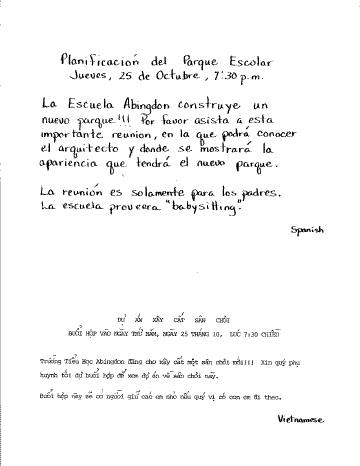 Planificación del Parque Escolar
Jueves, 25 de Octubre, 7:30 p.m.
La Escuela Abingdon construye un
nuevo parque!!! Por favor asista a esta
importante reunion, en la que podrá conocer
el arquitecto y donde se mostrará la
apariencia que tendrá el nuevo parque.
La reunión es solamente para los padres.
La escuela proveera "babysitting".
Spanish
DỰ ÁN XÂY CẤT SÂN CHƠI
BUỔI HỌP VÀO NGÀY THỨ NĂM, NGÀY 25 THÁNG 10, LÚC 7:30 CHIỀU
Trường Tiểu Học Abingdon đang cho xây cất một sân chơi mới!!! Xin quý phụ
huynh tới dự buổi họp để xem dự án về sân chơi này.
Buổi họp này sẽ có người giữ các em nhỏ nếu quý vị có con em đi theo.
Vietnamese